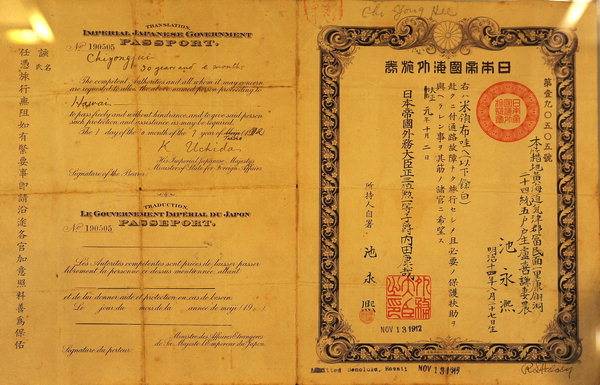 TRANSLATION.
IMPERIAL JAPANESE GOVERNMENT
PASSPORT.
No 190505
Chiyonghui
30 years and 2 months
The competent Authorities and all whom it may concern
are requested to allow the above named person proceeding to
Hawaii
to pass freely and without hindrance, and to give said person
such protection and assistance as may be required.
The 1 day of the 10 month of the 1 year of
K Uchida
His Imperial Japanese Majesty's
Minister of State for Foreign Affairs
Signature of the Bearer
TRADUCTION.
LE GOUVERNEMENT IMPÉRIAL DU JAPON
PASSEPORT.
No 190505
Les Autorités compétentes sont priées de laisser passer
librement la personne ci-dessus mentionnée, allant
et de lui donner aide et protection en cas de besoin.
Le jour du mois de la année de
Ministre des Affaires Etrangères
de Sa Majesté L'Empereur du Japon.
Signature du porteur
諭
氏名
任憑旅行無阻如有緊要事即請沿途各官加意照料善為保佑
Chi Yong Hee
日本帝國海外旅券
第壹九〇五〇五號
池永熙
明治十四年八月二十七日生
右ハ米領布哇
ヘ赴クニ付通路故障ナク旅行セシメ且必要ノ保護扶助ヲ
與ヘラレン事ヲ其筋ノ諸官ニ希望ス
大正元年十月二日
日本帝國外務大臣正三位勲一等子爵内田康哉
所持人自署
池永熙
NOV 13 1912
NOV 13 1912
Admitted Honolulu, Hawaii